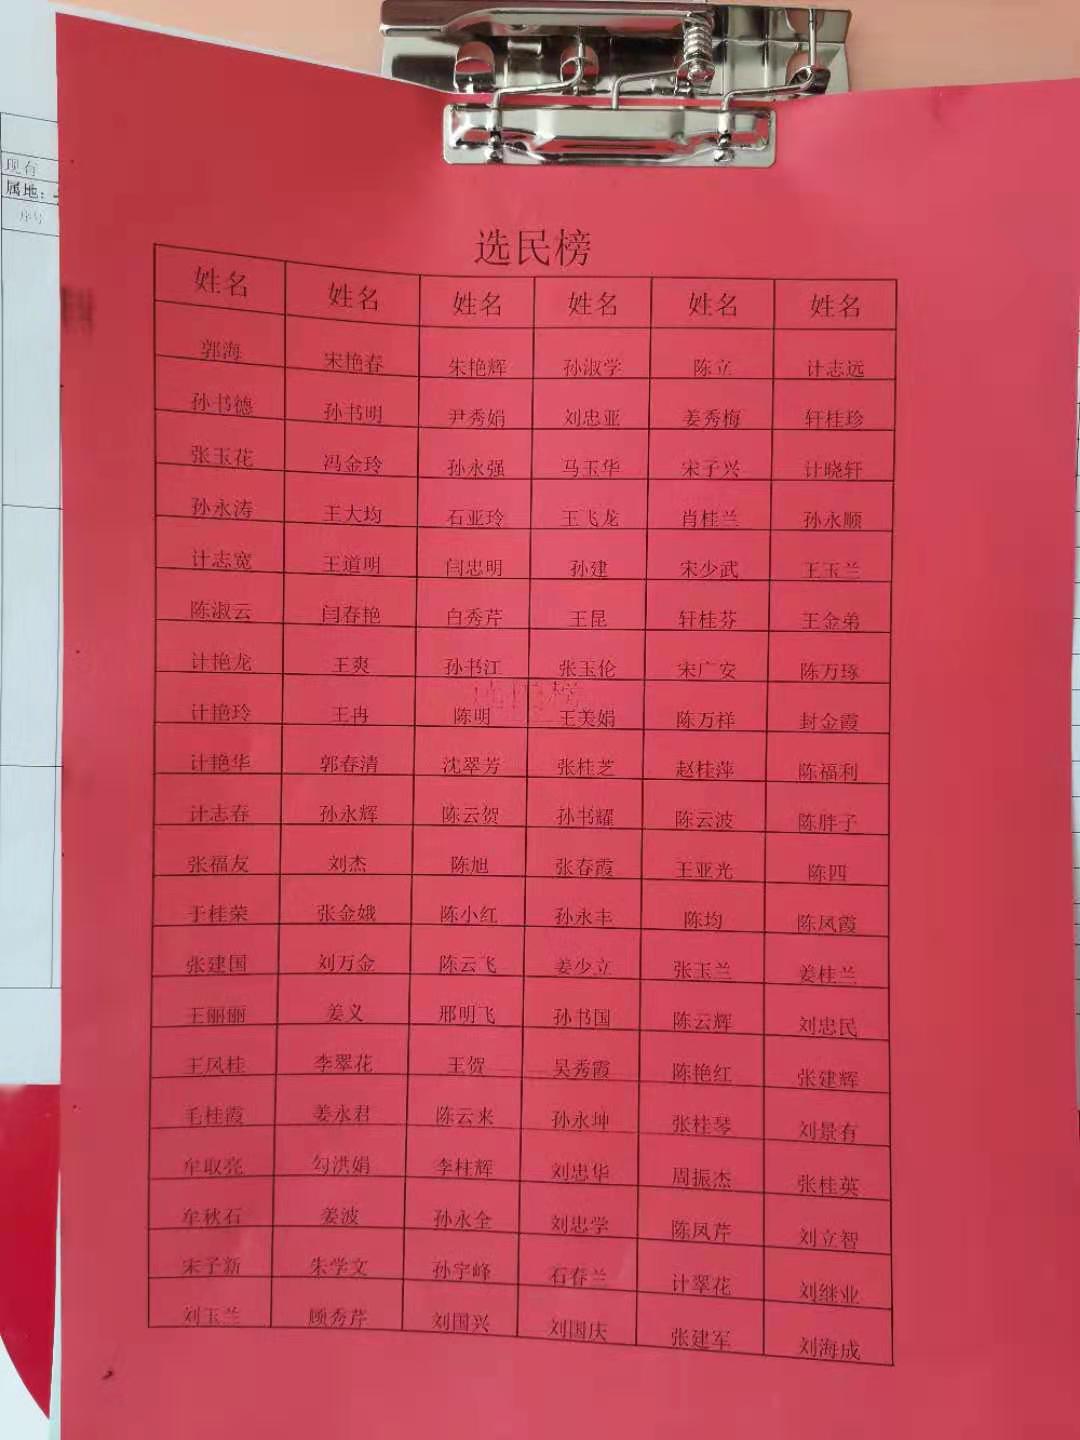 现有
属地：
序号
选民榜
姓名 姓名 姓名 姓名 姓名 姓名
郭海 宋艳春 朱艳辉 孙淑学 陈立 计志远
孙书德 孙书明 尹秀娟 刘忠亚 姜秀梅 轩桂珍
张玉花 冯金玲 孙永强 马玉华 宋子兴 计晓轩
孙永涛 王大均 石亚玲 王飞龙 肖桂兰 孙永顺
计志宽 王道明 闫忠明 孙建 宋少武 王玉兰
陈淑云 闫春艳 白秀芹 王昆 轩桂芬 王金弟
计艳龙 王爽 孙书江 张玉伦 宋广安 陈万琢
计艳玲 王冉 陈明 王美娟 陈万祥 封金霞
计艳华 郭春清 沈翠芳 张桂芝 赵桂萍 陈福利
计志春 孙永辉 陈云贺 孙书耀 陈云波 陈胖子
张福友 刘杰 陈旭 张春霞 王亚光 陈四
于桂荣 张金娥 陈小红 孙永丰 陈均 陈凤霞
张建国 刘万金 陈云飞 姜少立 张玉兰 姜桂兰
王丽丽 姜义 邢明飞 孙书国 陈云辉 刘忠民
王凤桂 李翠花 王贺 吴秀霞 陈艳红 张建辉
毛桂霞 姜永君 陈云来 孙永坤 张桂琴 刘景有
牟取亮 勾洪娟 李柱辉 刘忠华 周振杰 张桂英
牟秋石 姜波 孙永全 刘忠学 陈凤芹 刘立智
宋子新 朱学文 孙宇峰 石春兰 计翠花 刘继业
刘玉兰 顾秀芹 刘国兴 刘国庆 张建军 刘海成